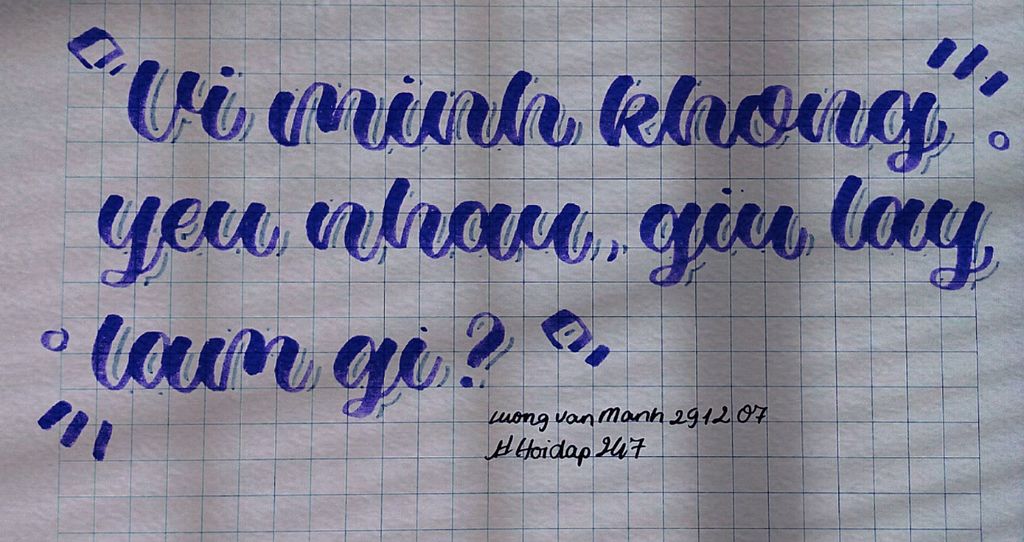 "Vi minh khong
yeu nhau, giu lay
lam gi?"
Luong van Manh 29 12 07
# Hoidap 247